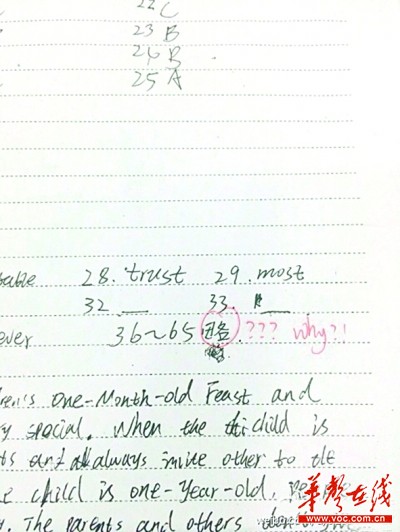 22 C
23 B
24 B
25 A
28. trust 29. most
32 __ 33. __
ever 36~65 略. ??? why?!
ren's One-Month-old Feast and
y special. When the child is
ts and always invite other to the
e child is one-year-old,
. The parents and others
华声在线
www.voc.com.cn